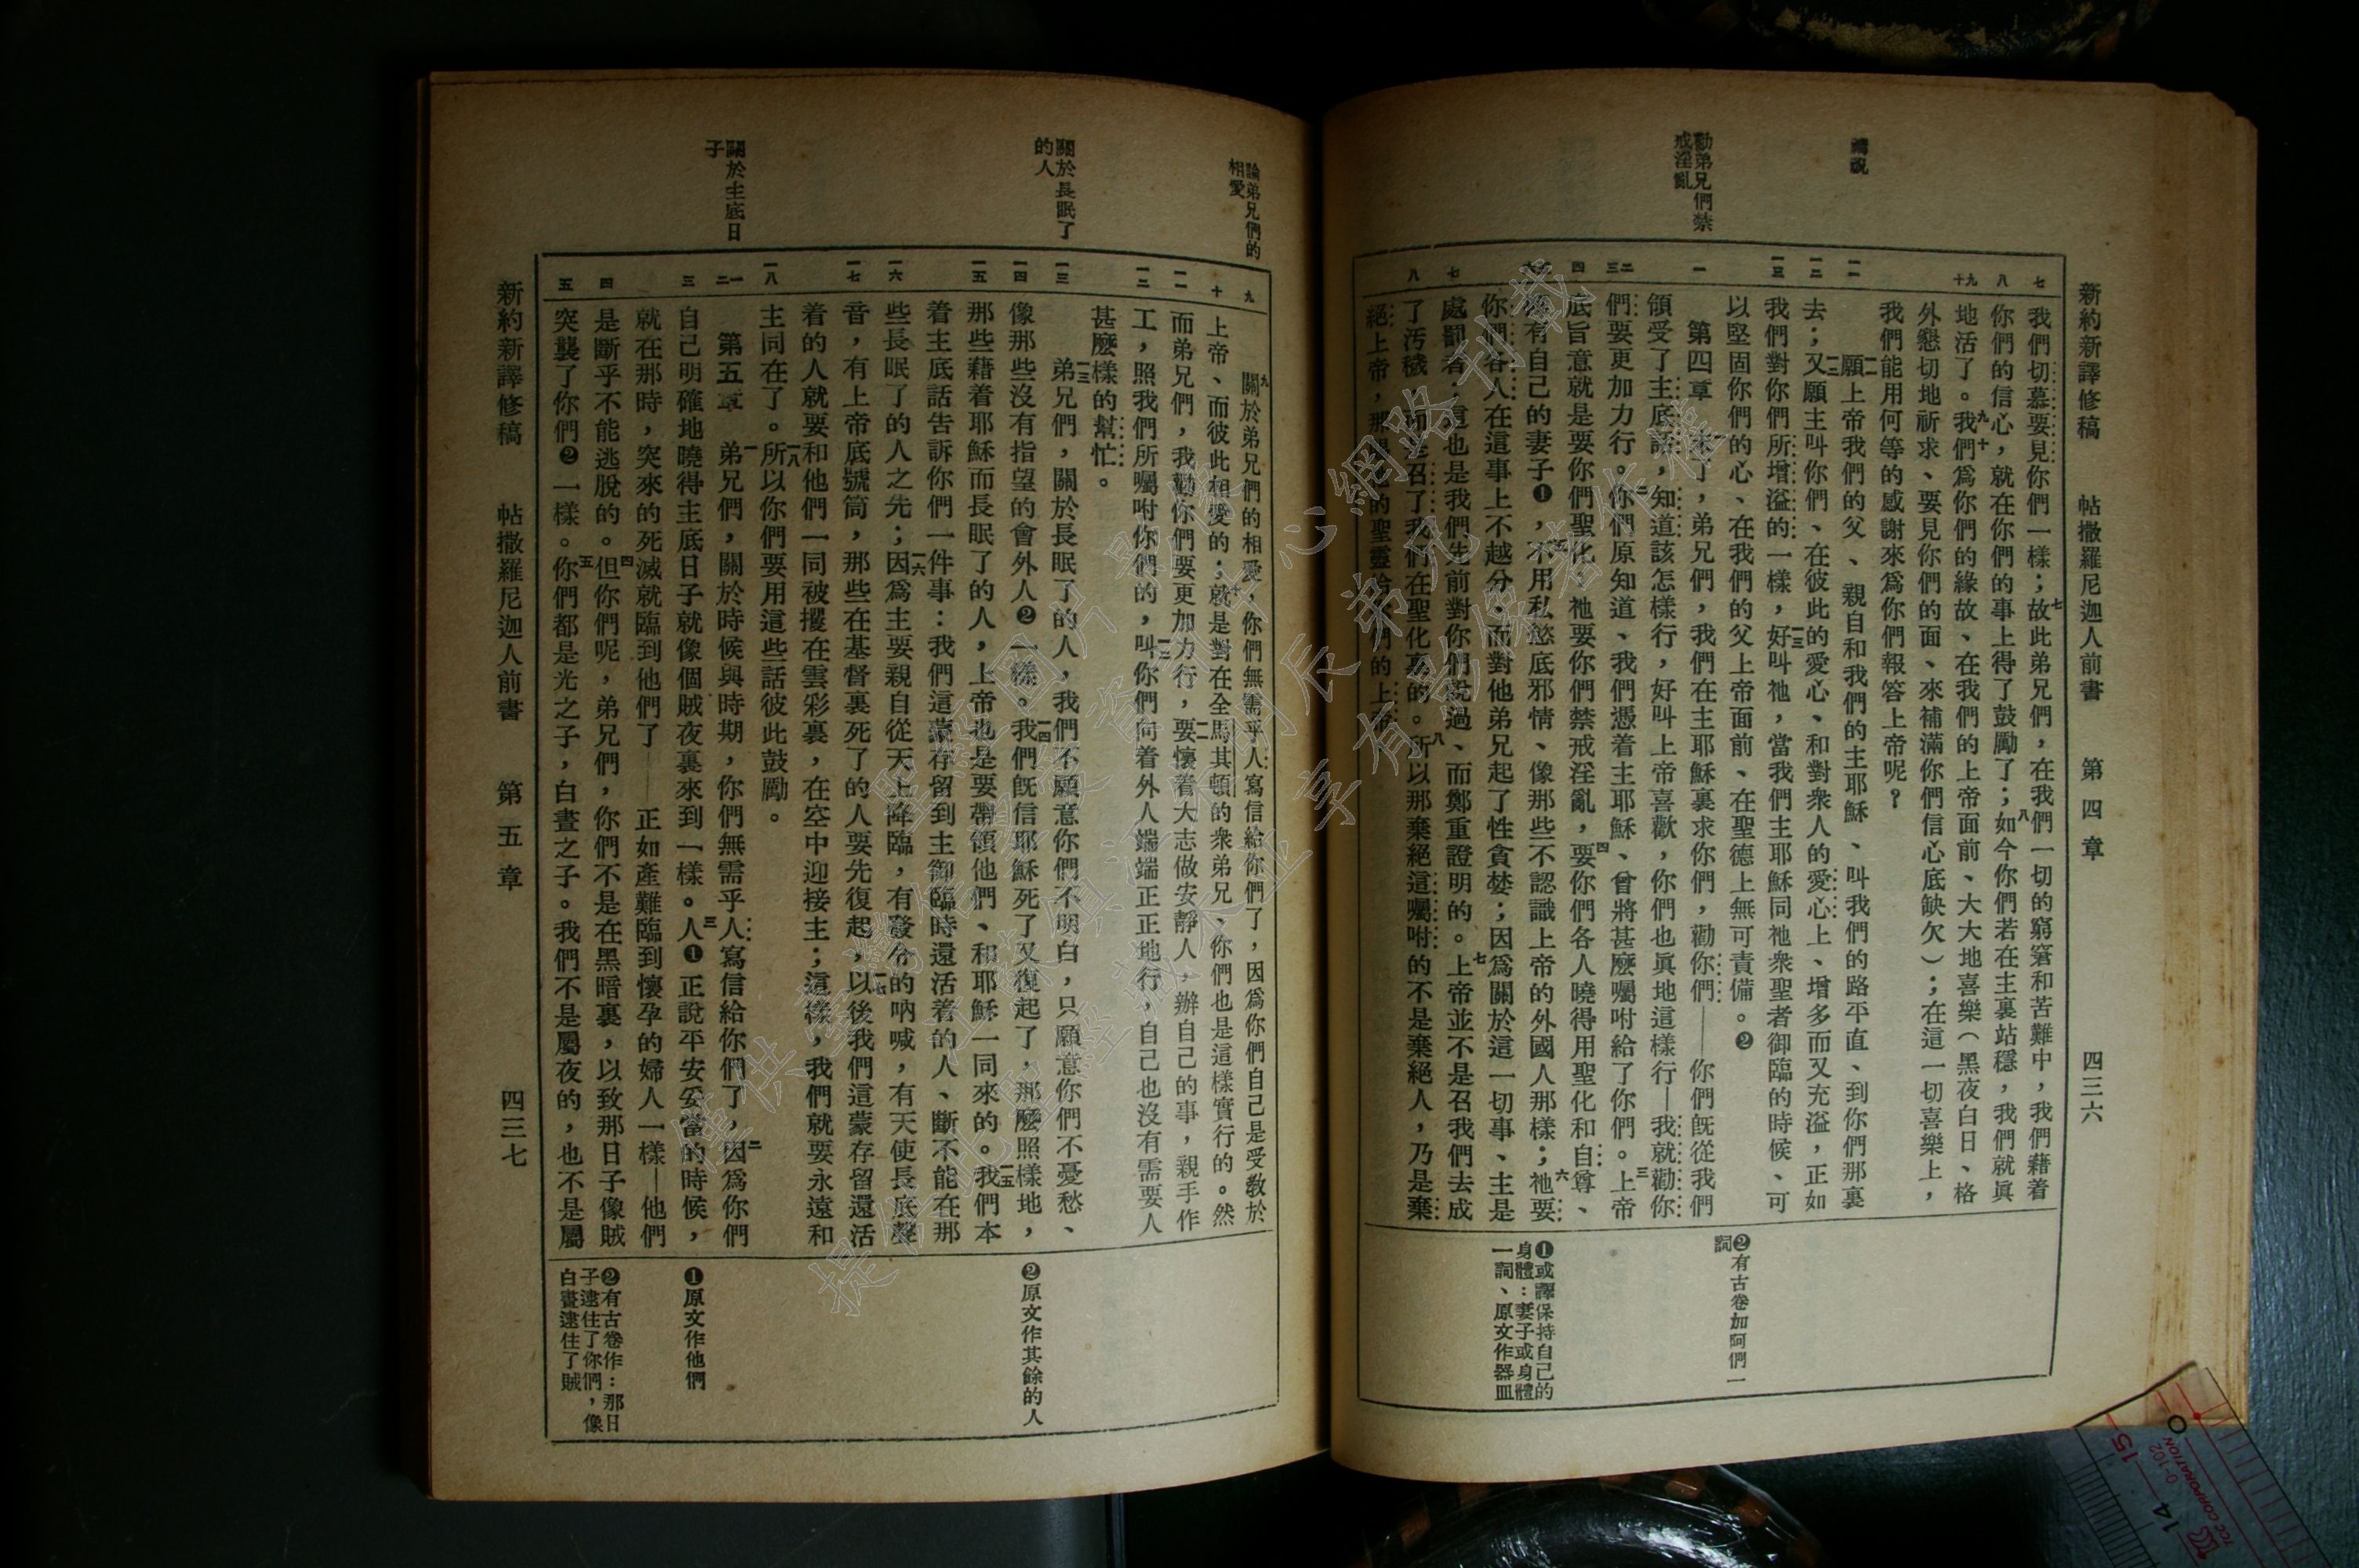 新約新譯修稿　帖撒羅尼迦人前書　第四章　四三六
禱祝
勸弟兄們禁
戒淫亂
七
八
九十
一一
一二
一三
一
二三
四
七
八
我們切慕要見你們一樣；七故此弟兄們，在我們一切的窮窘和苦難中，我們藉着
你們的信心，就在你們的事上得了鼓勵了；八如今你們若在主裏站穩，我們就眞
地活了。九十我們爲你們的緣故、在我們的上帝面前、大大地喜樂（黑夜白日、格
外懇切地祈求、要見你們的面、來補滿你們信心底缺欠）；在這一切喜樂上，
我們能用何等的感謝來爲你們報答上帝呢？
一一願上帝我們的父、親自和我們的主耶穌、叫我們的路平直、到你們那裏
去；一二又願主叫你們、在彼此的愛心、和對衆人的愛心上、增多而又充溢，正如
我們對你們所增溢的一樣，一三好叫祂，當我們主耶穌同祂衆聖者御臨的時候、可
以堅固你們的心、在我們的父上帝面前、在聖德上無可責備。❷
第四章　末了，弟兄們，我們在主耶穌裏求你們，勸你們——你們旣從我們
領受了主底話，知道該怎樣行，好叫上帝喜歡，你們也眞地這樣行—我就勸你
們要更加力行。二你們原知道、我們憑着主耶穌、曾將甚麼囑咐給了你們。三上帝
底旨意就是要你們聖化：祂要你們禁戒淫亂，四要你們各人曉得用聖化和自尊、
有自己的妻子❶，不用私慾底邪情、像那些不認識上帝的外國人那樣；六祂要
你們各人在這事上不越分、而對他弟兄起了性貪婪；因爲關於這一切事、主是
處罰者；這也是我們先前對你們說過、而鄭重證明的。七上帝並不是召我們去成
了汚穢，而是召了我們在聖化裏的。八所以那棄絕這囑咐的不是棄絕人，乃是棄
絕上帝，那把祂的聖靈給你們的上帝。
❷有古卷加阿們一
詞
❶或譯保持自己的
身體：妻子或身體
一詞、原文作器皿
論弟兄們的
相愛
關於長眠了
的人
關於主底日
子
九
十
一一
一二
一三
一四
一五
一六
一七
一八
一二
三
四
五
九關於弟兄們的相愛，你們無需乎人寫信給你們了，因爲你們自己是受敎於
上帝、而彼此相愛的；十就是對在全馬其頓的衆弟兄、你們也是這樣實行的。然
而弟兄們，我勸你們要更加力行，一一要懷着大志做安靜人，辦自己的事，親手作
工，照我們所囑咐你們的，一二叫你們向着外人端端正正地行，自己也沒有需要人
甚麼樣的幫忙。
一三弟兄們，關於長眠了的人，我們不願意你們不明白，只願意你們不憂愁、
像那些沒有指望的會外人❷一樣。一四我們旣信耶穌死了又復起了，那麼照樣地，
那些藉着耶穌而長眠了的人，上帝也是要帶領他們、和耶穌一同來的。一五我們本
着主底話告訴你們一件事：我們這蒙存留到主御臨時還活着的人、斷不能在那
些長眠了的人之先；一六因爲主要親自從天上降臨，有發令的吶喊，有天使長底聲
音，有上帝底號筒，那些在基督裏死了的人要先復起，一七以後我們這蒙存留還活
着的人就要和他們一同被攫在雲彩裏，在空中迎接主；這樣，我們就要永遠和
主同在了。一八所以你們要用這些話彼此鼓勵。
第五章　一弟兄們，關於時候與時期，你們無需乎人寫信給你們了，二因爲你們
自己明確地曉得主底日子就像個賊夜裏來到一樣。三人❶正說平安妥當的時候，
就在那時，突來的死滅就臨到他們了——正如產難臨到懷孕的婦人一樣—他們
是斷乎不能逃脫的。四但你們呢，弟兄們，你們不是在黑暗裏，以致那日子像賊
突襲了你們❷一樣。五你們都是光之子，白晝之子。我們不是屬夜的，也不是屬
❷原文作其餘的人
❶原文作他們
❷有古卷作：那日
子逮住了你們，像
白晝逮住了賊
新約新譯修稿　帖撒羅尼迦人前書　第五章　四三七
15
14
0-102
TCC CORPORATION